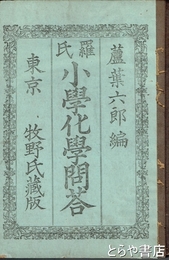 蘆葉六郎編
羅氏
小學化學問答
東京 牧野氏藏版
とらや書店